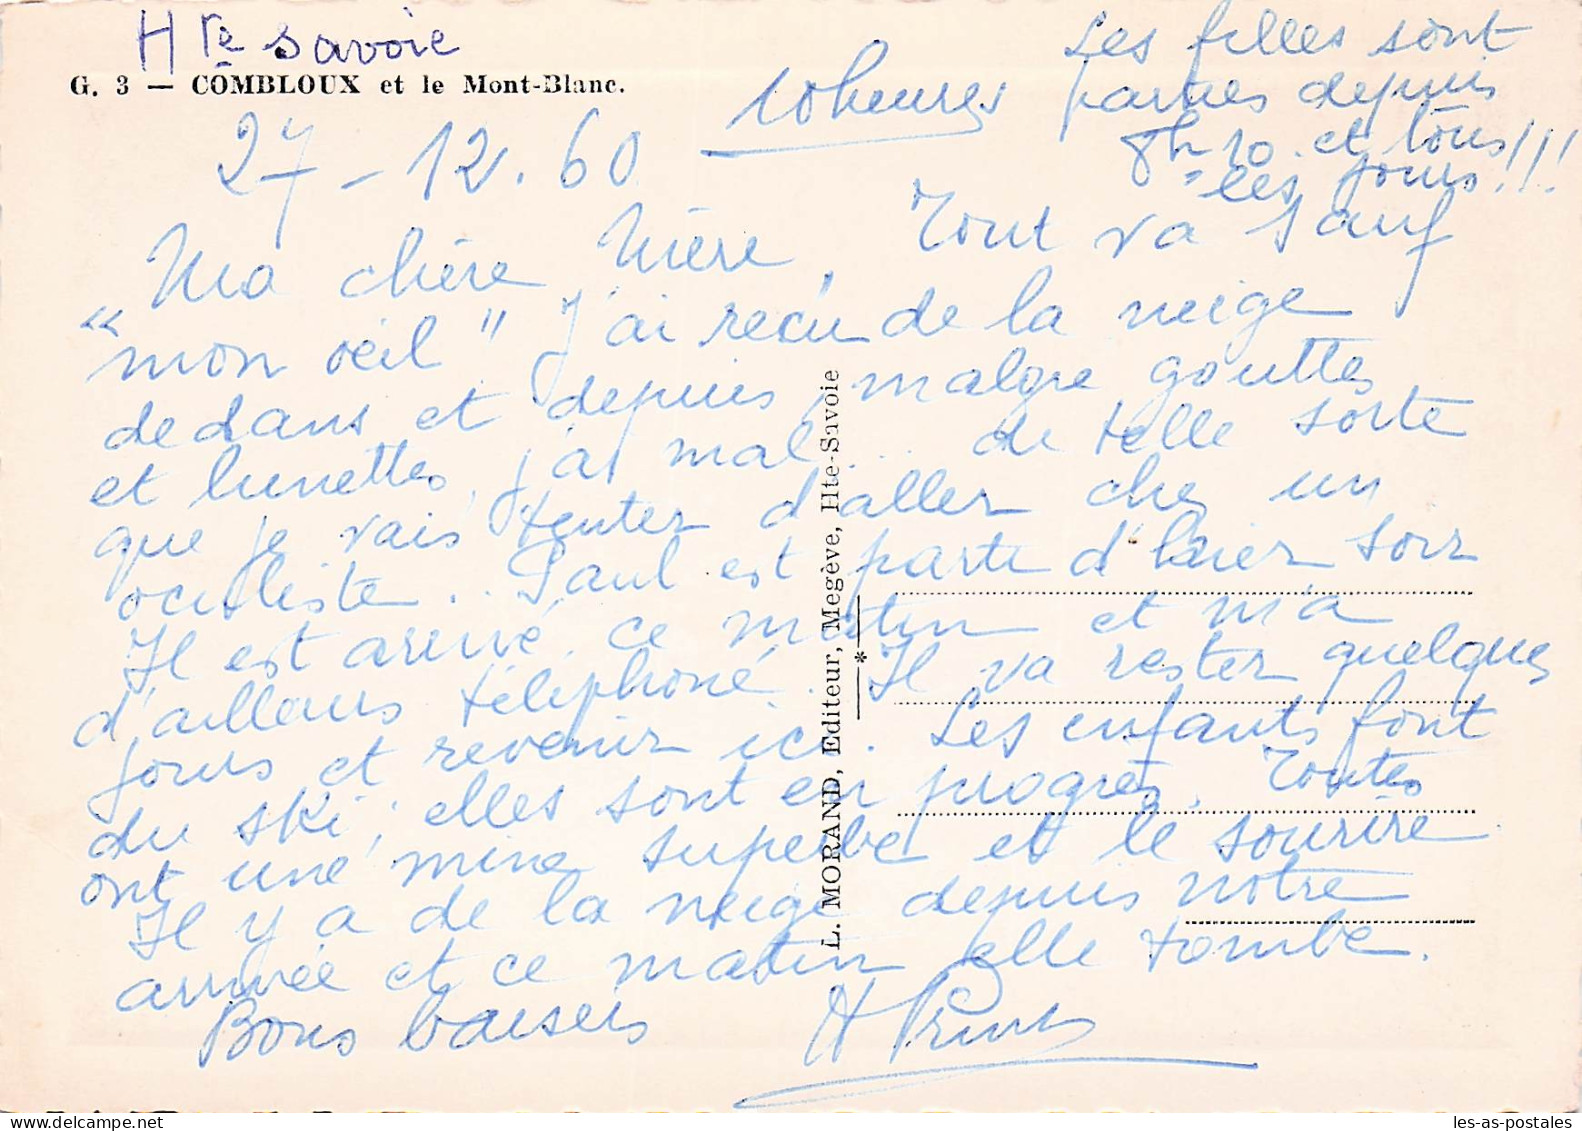 Hte Savoie
G. 3 — COMBLOUX et le Mont-Blanc.
27 - 12. 60
10 heures
Les filles sont
parties depuis
8h 10. et tous
les jours!!!
Ma chère Mère, Tout va sauf
"mon oeil" J'ai reçu de la neige
dedans et depuis, malgré gouttes
et lunettes, j'ai mal... de telle sorte
que je vais tenter d'aller chez un
oculiste.. Paul est parti d'hier soir
Il est arrivé ce matin et m'a
d'ailleurs téléphoné. Il va rester quelques
jours et revenir ici. Les enfants font
du ski, elles sont en progrès. Toutes
ont une mine superbe et le sourire
Il y a de la neige depuis notre
arrivée et ce matin elle tombe.
Bons baisers
L. MORAND, Editeur, Megève, Hte-Savoie
les-as-postales